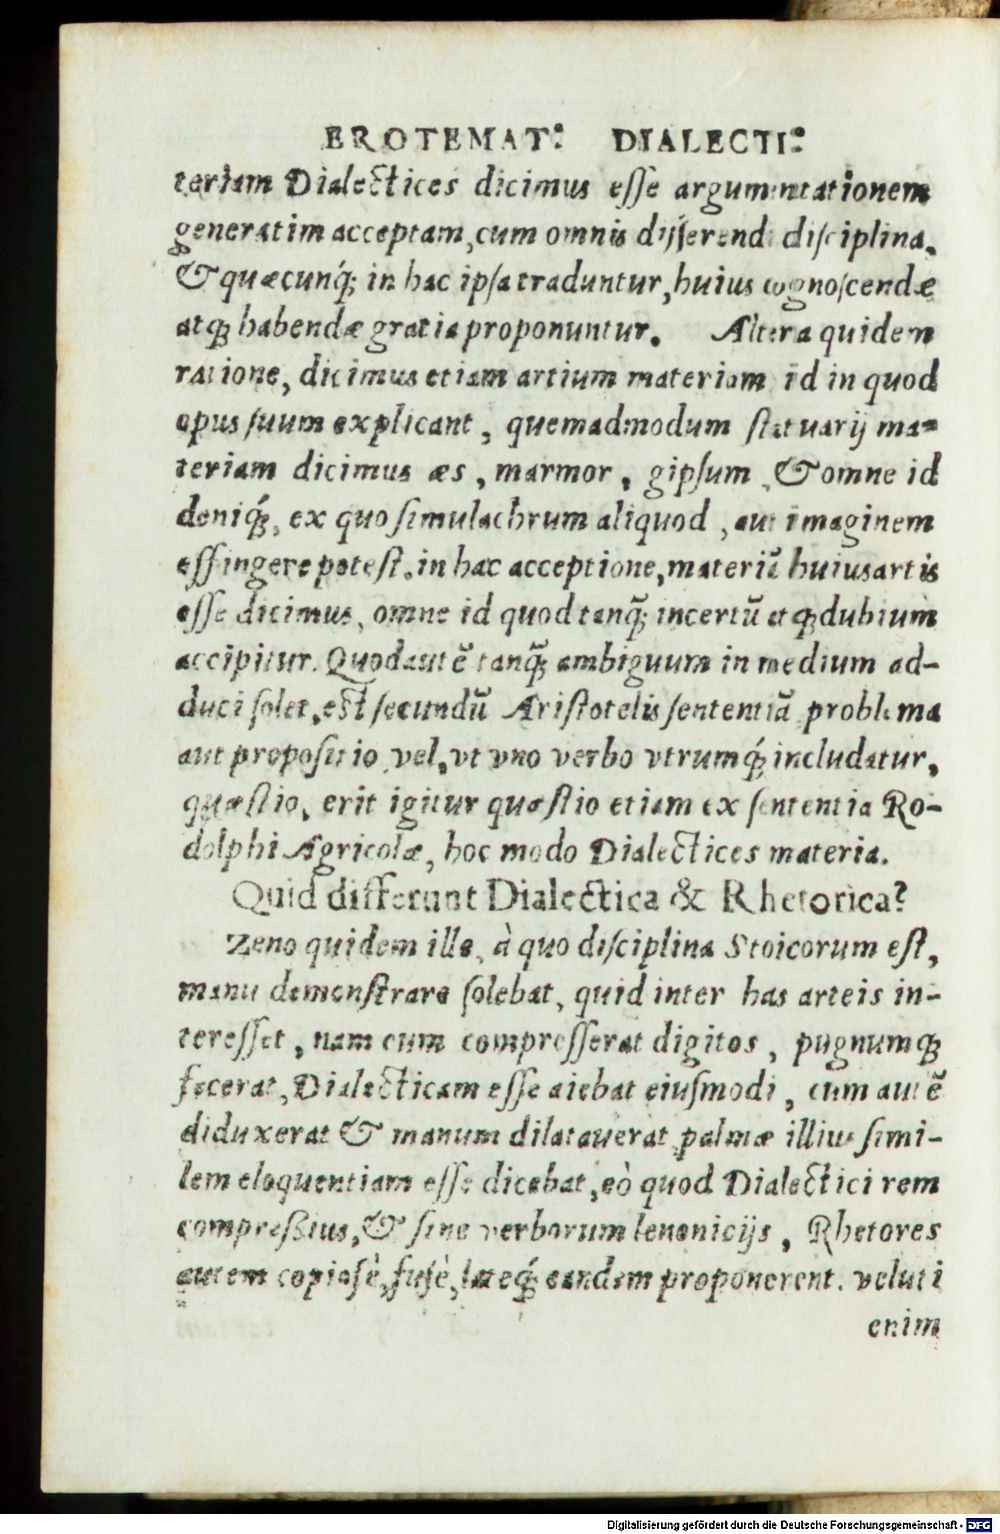 EROTEMAT: DIALECTI:
teriam Dialectices dicimus esse argumentationem
generatim acceptam, cum omnis disserendi disciplina,
& quæcunq́; in hac ipsa traduntur, huius cognoscendæ
atq; habendæ gratia proponuntur. Altera quidem
ratione, dicimus etiam artium materiam id in quod
opus suum explicant, quemadmodum statuarij ma=
teriam dicimus æs, marmor, gipsum, & omne id
deniq́;, ex quo simulachrum aliquod, aut imaginem
effingere potest. in hac acceptione, materiũ huius artis
esse dicimus, omne id quod tanq̃; incertũ atq; dubium
accipitur. Quod autẽ tanq̃; ambiguum in medium ad-
duci solet, est secundũ Aristotelis sententiã problema
aut propositio vel, vt vno verbo vtrumq́; includatur,
quæstio, erit igitur quæstio etiam ex sententia Ro-
dolphi Agricolæ, hoc modo Dialectices materia.
Quid differunt Dialectica & Rhetorica?
Zeno quidem ille, à quo disciplina Stoicorum est,
manu demonstrare solebat, quid inter has arteis in-
teresset, nam cum compresserat digitos, pugnumq;
fecerat, Dialecticam esse aiebat eiusmodi, cum autẽ
diduxerat & manum dilatauerat palmæ illius simi-
lem eloquentiam esse dicebat, eò quod Dialectici rem
compreßius, & sine verborum lenonicijs, Rhetores
autem copiosè, fusè, lateq́; eandem proponerent. veluti
enim
Digitalisierung gefördert durch die Deutsche Forschungsgemeinschaft - DFG